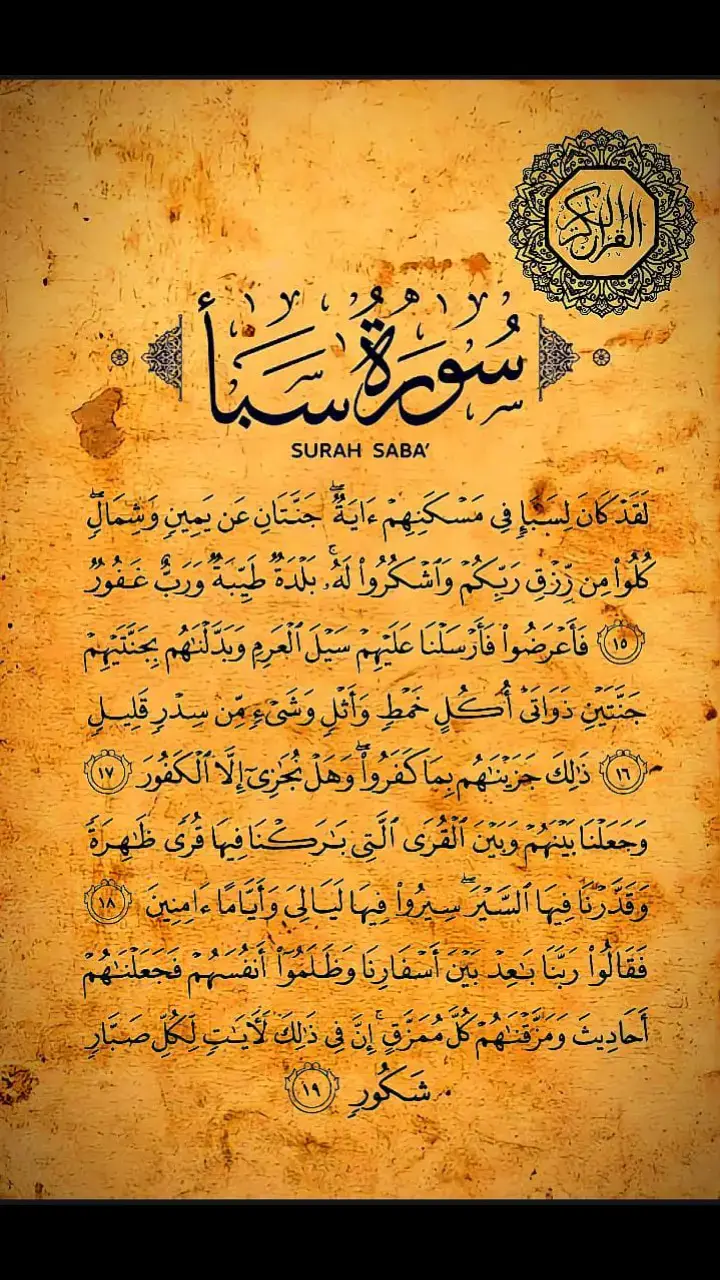 القرآن الكريم
سُورَةُ سَبَأ
SURAH SABA’
لَقَدْ كَانَ لِسَبَإٍ فِى مَسْكَنِهِمْ ءَايَةٌ ۖ جَنَّتَانِ عَن يَمِينٍ وَشِمَالٍ ۖ
كُلُوا۟ مِن رِّزْقِ رَبِّكُمْ وَٱشْكُرُوا۟ لَهُۥ ۚ بَلْدَةٌ طَيِّبَةٌ وَرَبٌّ غَفُورٌ
١٥ فَأَعْرَضُوا۟ فَأَرْسَلْنَا عَلَيْهِمْ سَيْلَ ٱلْعَرِمِ وَبَدَّلْنَٰهُم بِجَنَّتَيْهِمْ
جَنَّتَيْنِ ذَوَاتَىْ أُكُلٍ خَمْطٍ وَأَثْلٍ وَشَىْءٍ مِّن سِدْرٍ قَلِيلٍ
١٦ ذَٰلِكَ جَزَيْنَٰهُم بِمَا كَفَرُوا۟ ۖ وَهَلْ نُجَٰزِىٓ إِلَّا ٱلْكَفُورَ ١٧
وَجَعَلْنَا بَيْنَهُمْ وَبَيْنَ ٱلْقُرَى ٱلَّتِى بَٰرَكْنَا فِيهَا قُرًى ظَٰهِرَةً
وَقَدَّرْنَا فِيهَا ٱلسَّيْرَ ۖ سِيرُوا۟ فِيهَا لَيَالِىَ وَأَيَّامًا ءَامِنِينَ ١٨
فَقَالُوا۟ رَبَّنَا بَٰعِدْ بَيْنَ أَسْفَارِنَا وَظَلَمُوٓا۟ أَنفُسَهُمْ فَجَعَلْنَٰهُمْ
أَحَادِيثَ وَمَزَّقْنَٰهُمْ كُلَّ مُمَزَّقٍ ۚ إِنَّ فِى ذَٰلِكَ لَءَايَٰتٍ لِّكُلِّ صَبَّارٍ
شَكُورٍ ١٩